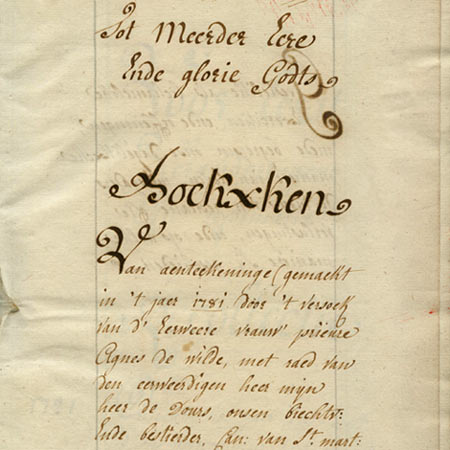 Tot Meerder Eere
Ende glorie Godts
Bockxken
Van aenteekeninge gemackt
in 't jaer 1781 door 't versoek
van d' Eerweere vrauw' prieure
Agnes de wilde, met raed van
den eerweerdigen heer mijn
heer de Dours, onsen biechtv:
Ende bestierder, Can: van St. mart: